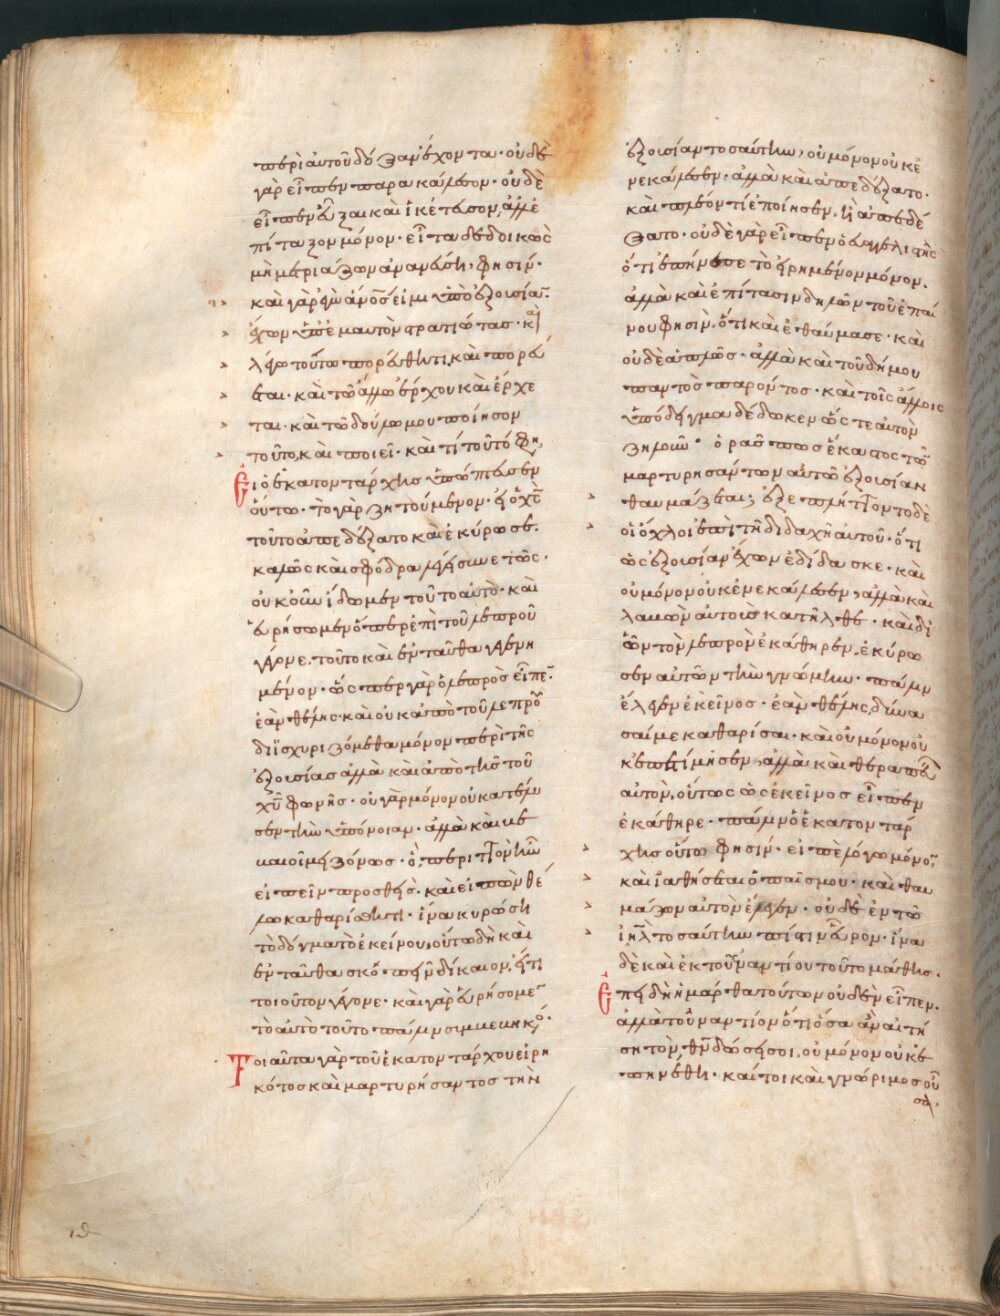 περὶ αὐτοῦ δόξαν ἔχοντα· οὐδὲ
γὰρ εἶπεν παρακάλεσον· οὐδὲ
εἶπεν εὖξαι καὶ ἱκέτευσον, ἀλλ' ἐ
πίταξον μόνον· εἶτα δεδοικὼς
μὴ μετριάζων ἀνανεύσῃ, φησίν·
καὶ γὰρ ἐγὼ ἄνος εἰμι ὑπὸ ἐξουσίαν
ἔχων ὑπ' ἐμαυτὸν στρατιώτας· καὶ
λέγω τούτω πορεύθητι, καὶ πορεύ
εται· καὶ τῶ ἄλλω ἔρχου καὶ ἔρχε
ται· καὶ τῶ δούλω μου ποίησον
τοῦτο, καὶ ποιεῖ· καὶ τί τοῦτό φη
Εἰ ὁ ἑκατοντάρχης ὑπώπτευσεν
οὕτω· τὸ γὰρ ζητούμενον· εἰ ὁ χς
τοῦτο ἀπεδέξατο καὶ ἐκύρωσε·
καλῶς καὶ σφόδρα λέγεις συνετῶς·
οὐκοῦν ἴδωμεν τοῦτο αὐτό· καὶ
εὑρήσωμεν ὅπερ ἐπὶ τοῦ λεπροῦ
γέγονε, τοῦτο καὶ ἐνταῦθα γεγενη
μένον· ὥσπερ γὰρ ὁ λεπρὸς εἶπεν·
ἐὰν θέλῃς· καὶ οὐκ ἀπὸ τοῦ λεπροῦ
διϊσχυριζόμεθα μόνον περὶ τῆς
ἐξουσίας ἀλλὰ καὶ ἀπὸ τῆς τοῦ
χυ φωνῆς· οὐ γὰρ μόνον οὐ κατέλυ
σεν τὴν ὑπόνοιαν· ἀλλὰ καὶ ἐβε
βαίου μειζόνως· ὃ περιττὸν ἦν
εἰπεῖν προσθείς· καὶ εἰπὼν θέ
λω καθαρίσθητι· ἵνα κυρώσῃ
τὸ δόγμα τὸ ἐκείνου, οὕτω δὴ καὶ
ἐνταῦθα σκοπεῖν δίκαιον, εἴ τι
τοιοῦτον γέγονε· καὶ γὰρ εὑρήσομεν
τὸ αὐτὸ τοῦτο πάλιν συμβεβηκός·
Τοιαῦτα γὰρ τοῦ ἑκατοντάρχου εἰρη
κότος καὶ μαρτυρήσαντος τὴν
ἐξουσίαν τοσαύτην, οὐ μόνον οὐκ ἐ
νεκάλεσεν· ἀλλὰ καὶ ἀπεδέξατο·
καὶ πλέόν τι ἐποίησεν, ἢ ἀπεδέ
ξατο· οὐδὲ γὰρ εἶπεν ὁ εὐαγγελιστὴς
ὅτι ἐπήνεσε τὸ εἰρημένον μόνον.
ἀλλὰ καὶ ἐπίτασιν δηλῶν τοῦ ἐπαί
νου φησίν, ὅτι καὶ ἐθαύμασε· καὶ
οὐδὲ ἁπλῶς· ἀλλὰ καὶ τοῦ δήμου
παντὸς παρόντος· καὶ τοῖς ἄλλοις
ὑπόδειγμα δέδωκεν ὥστε αὐτὸν
ζηλοῦν· ὁρᾶς πῶς ἕκαστος τῶν
μαρτυρησάντων αὐτῶ ἐξουσίαν
θαυμάζεται; ἐξεπλήττοντο δὲ
οἱ ὄχλοι ἐπὶ τῇ διδαχῇ αὐτοῦ· ὅτι
ὡς ἐξουσίαν ἔχων ἐδίδασκε· καὶ
οὐ μόνον οὐκ ἐνεκάλεσεν, ἀλλὰ καὶ
λαβὼν αὐτοὺς κατῆλθε· καὶ δι'
ὧν τὸν λεπρὸν ἐκάθηρεν, ἐκύρω
σεν αὐτῶν τὴν γνώμην· πάλιν
ἔλεγεν ἐκεῖνος· ἐὰν θέλῃς, δύνα
σαί με καθαρίσαι· καὶ οὐ μόνον οὐ
κ ἐπετίμησεν, ἀλλὰ καὶ θεραπεύει
αὐτόν, οὕτως ὡς ἐκεῖνος εἶπεν
ἐκάθηρε· πάλιν ὁ ἑκατοντάρ
χης οὗτος φησίν· εἰπὲ λόγω μόνον,
καὶ ἰαθήσεται ὁ παῖς μου· καὶ θαυ
μάζων αὐτὸν ἔλεγεν· οὐδὲ ἐν τῶ
ιηλ τοσαύτην πίστιν εὗρον· ἵνα
δὲ καὶ ἐκ τοῦ ἐναντίου τοῦτο μάθῃς.
Ἐπειδὴ ἡ μάρθα τούτων οὐδὲν εἶπεν.
ἀλλὰ τοὐναντίον ὅτι ὅσα ἂν αἰτή
σῃ τὸν θν δώσει σοι, οὐ μόνον οὐκ ἐ
πηνέθη· καίτοι καὶ γνώριμος οὖ
σα,